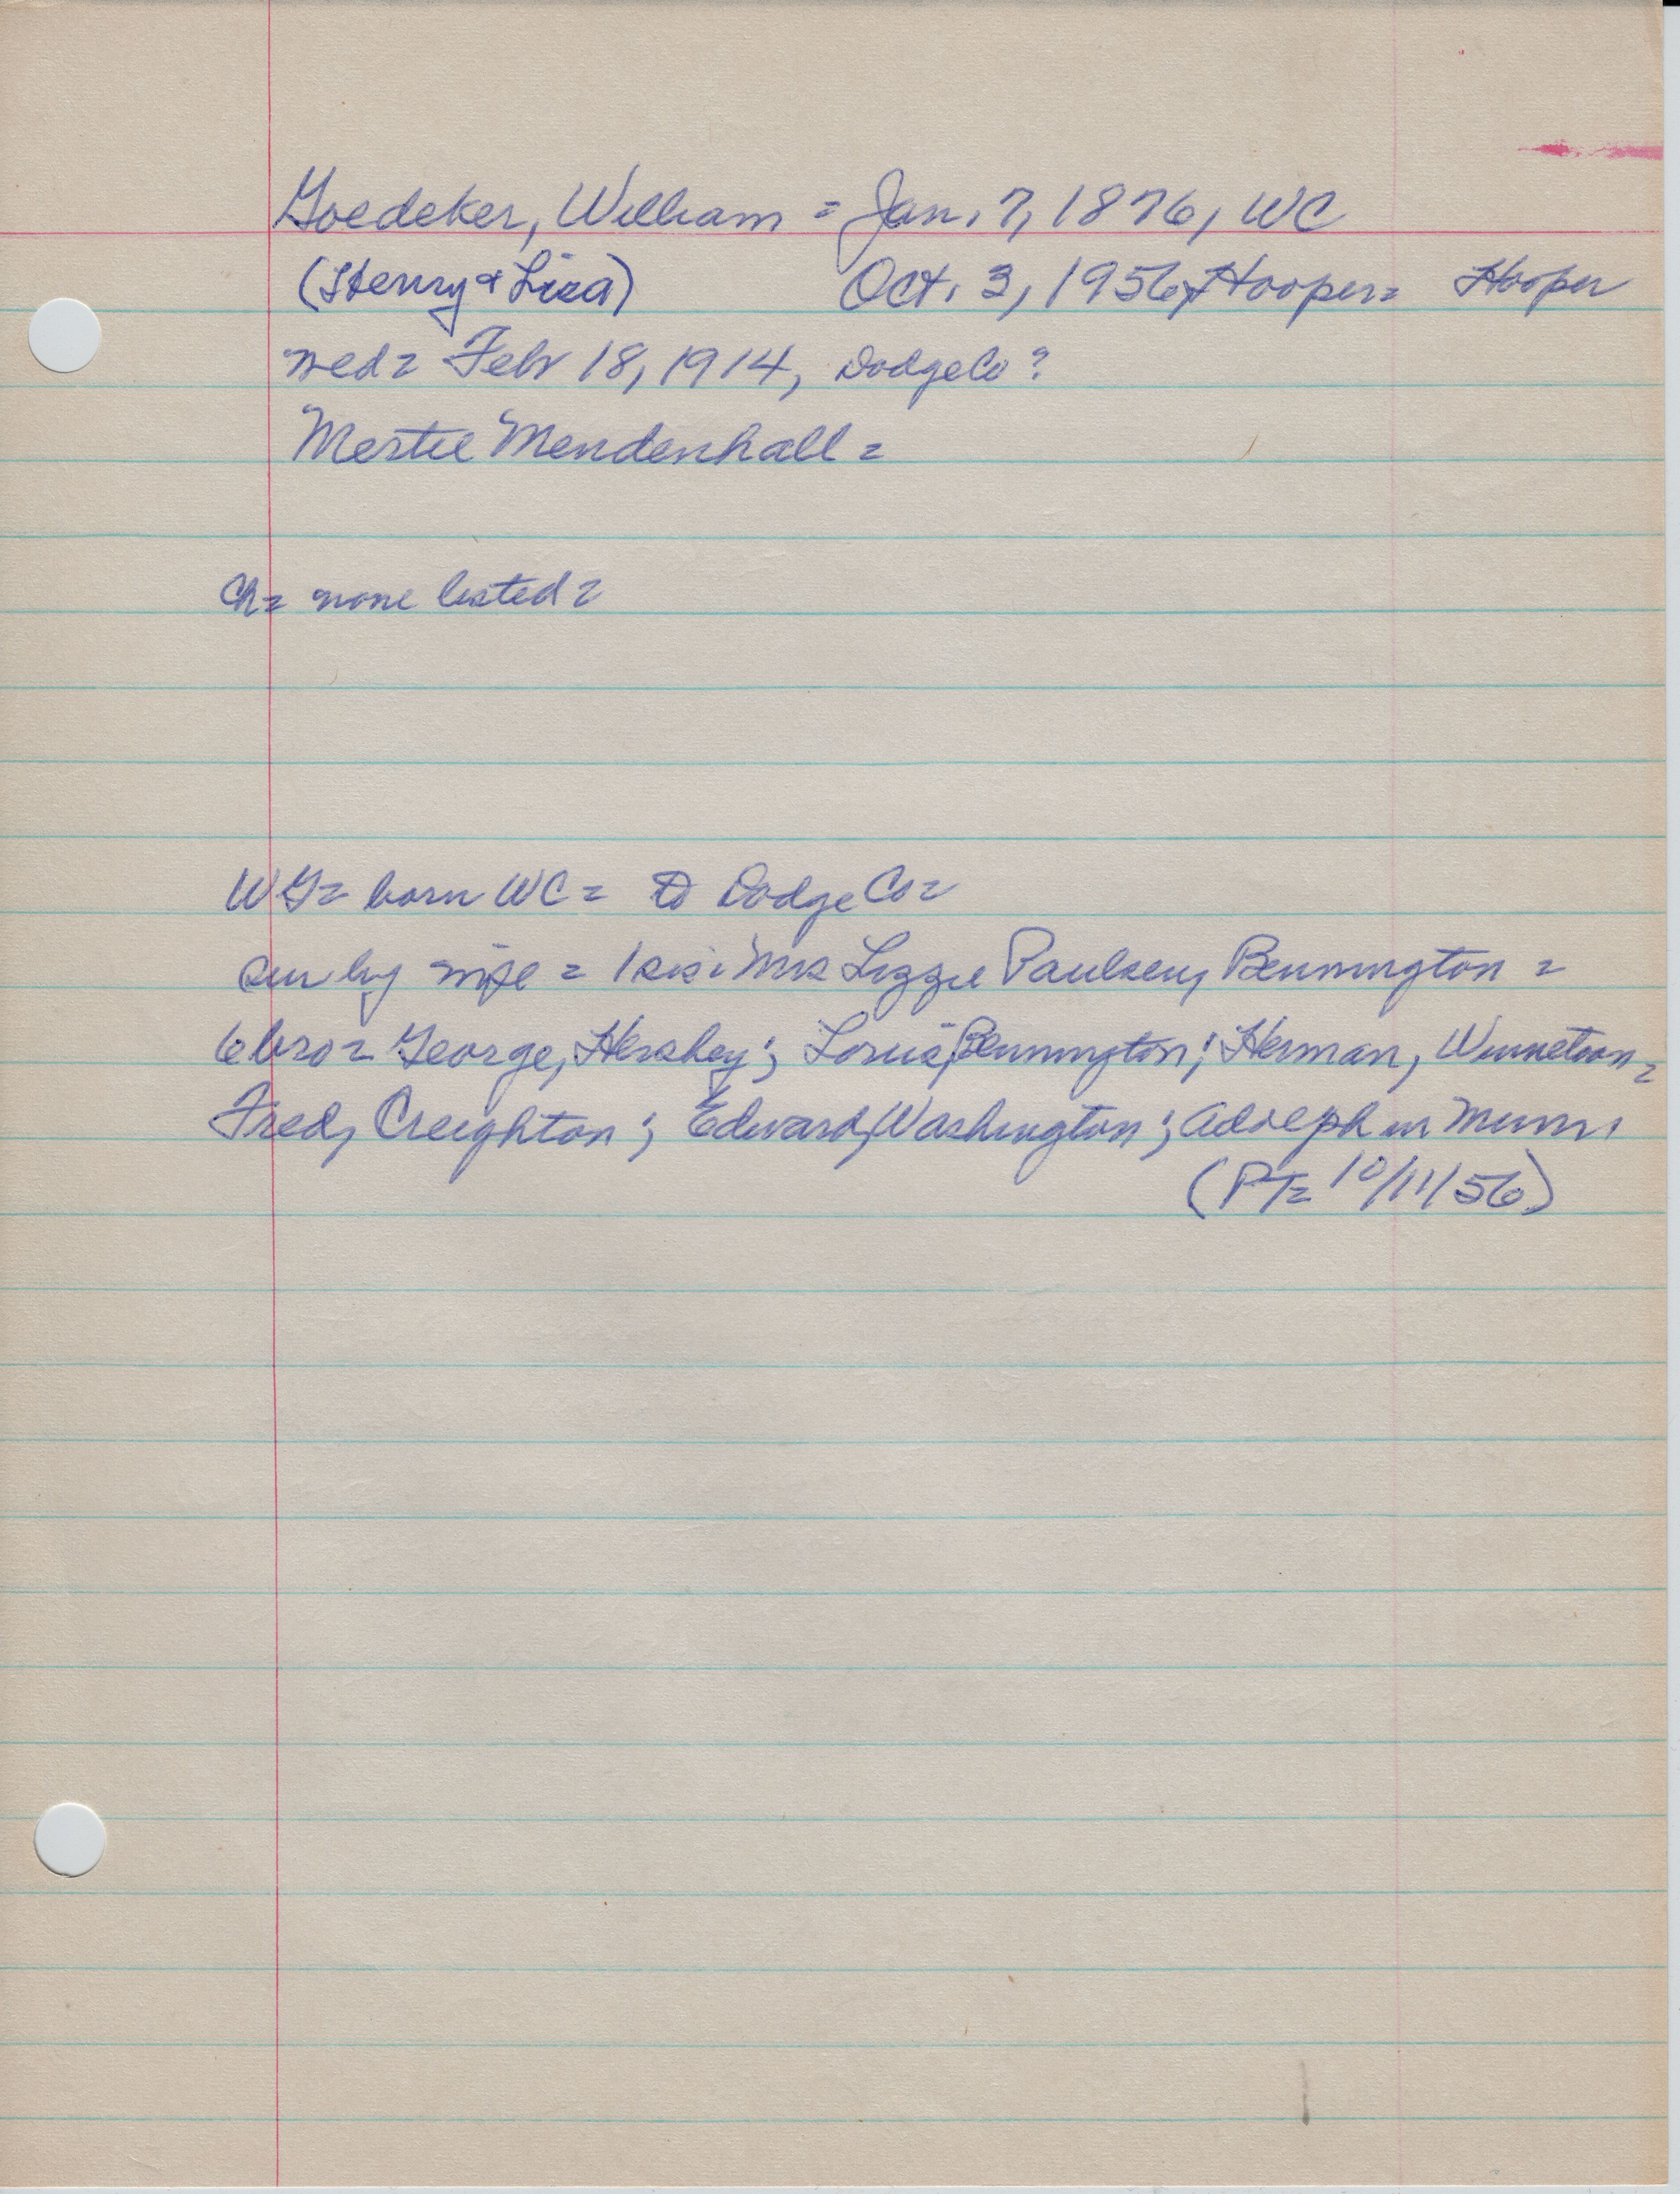 Goedeker, William = Jan. 7, 1876, WC
(Henry & Liza) Oct. 3, 1956, Hooper= Hooper
wed= Feb 18, 1914, Dodge Co?
Mertie Mendenhall =
Ch= none listed=
WG= born WC= to Dodge Co=
sur by wife = 1 sis: Mrs Lizzie Paulsen, Bennington =
6 bro= George, Hershey; Louis, Bennington; Herman, Winnetoon=
Fred, Creighton; Edward, Washington; Adolph in Minn.
(PT= 10/11/56)